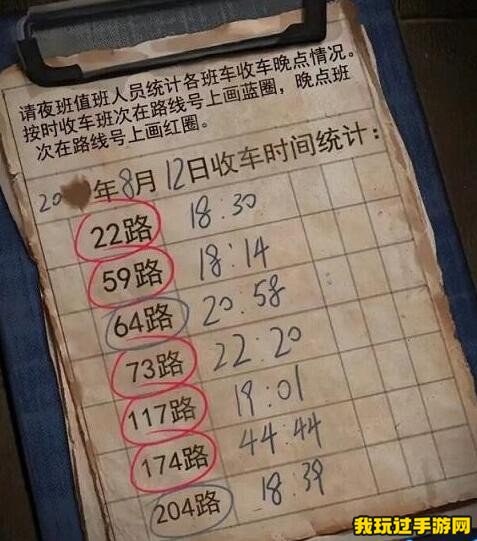 请夜班值班人员统计各班车收车晚点情况。
按时收车班次在路线号上画蓝圈，晚点班
次在路线号上画红圈。
20 年8月12日收车时间统计：
22路 18:30
59路 18:14
64路 20:58
73路 22:20
117路 19:01
174路 44:44
204路 18:39
我玩过手游网